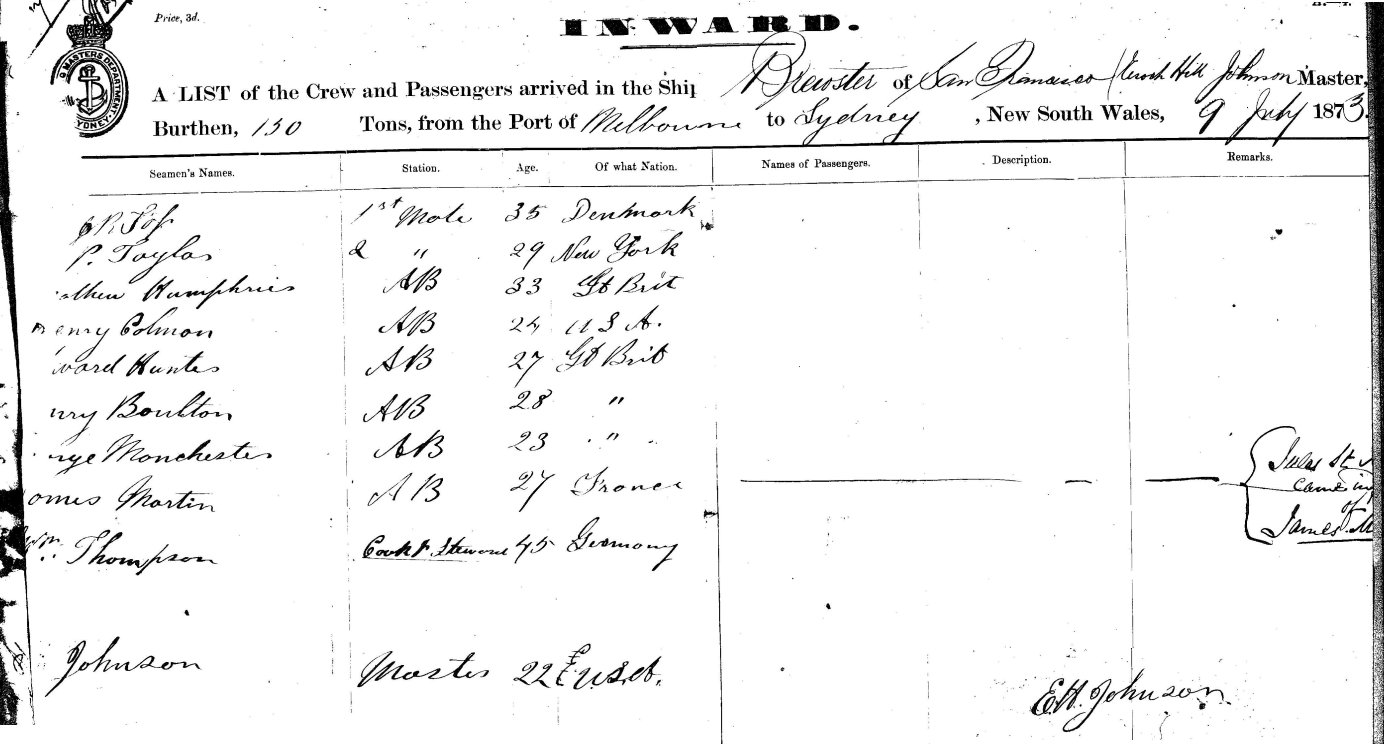 Price, 3d.
INWARD.
MASTERS DEPARTMENT. SYDNEY.
A LIST of the Crew and Passengers arrived in the Ship Brewster of San Francisco (Enoch Hill Johnson Master,
Burthen, 130 Tons, from the Port of Melbourne to Sydney, New South Wales, 9 July 1873.
Seamen's Names. Station. Age. Of what Nation. Names of Passengers. Description. Remarks.
1st Mate 35 Denmark
P. Taylor 2 " 29 New York
Humphries AB 33 Gt Brit
enry Colman AB 24 U S A.
ward Hunter AB 27 Gt Brit
nry Boulton AB 28 "
rge Manchester AB 23 "
James Martin AB 27 France
St
came in
of
James M
Wm. Thompson Cook & Steward 45 Germany
Johnson Master 22 U.S.A.
E.H. Johnson